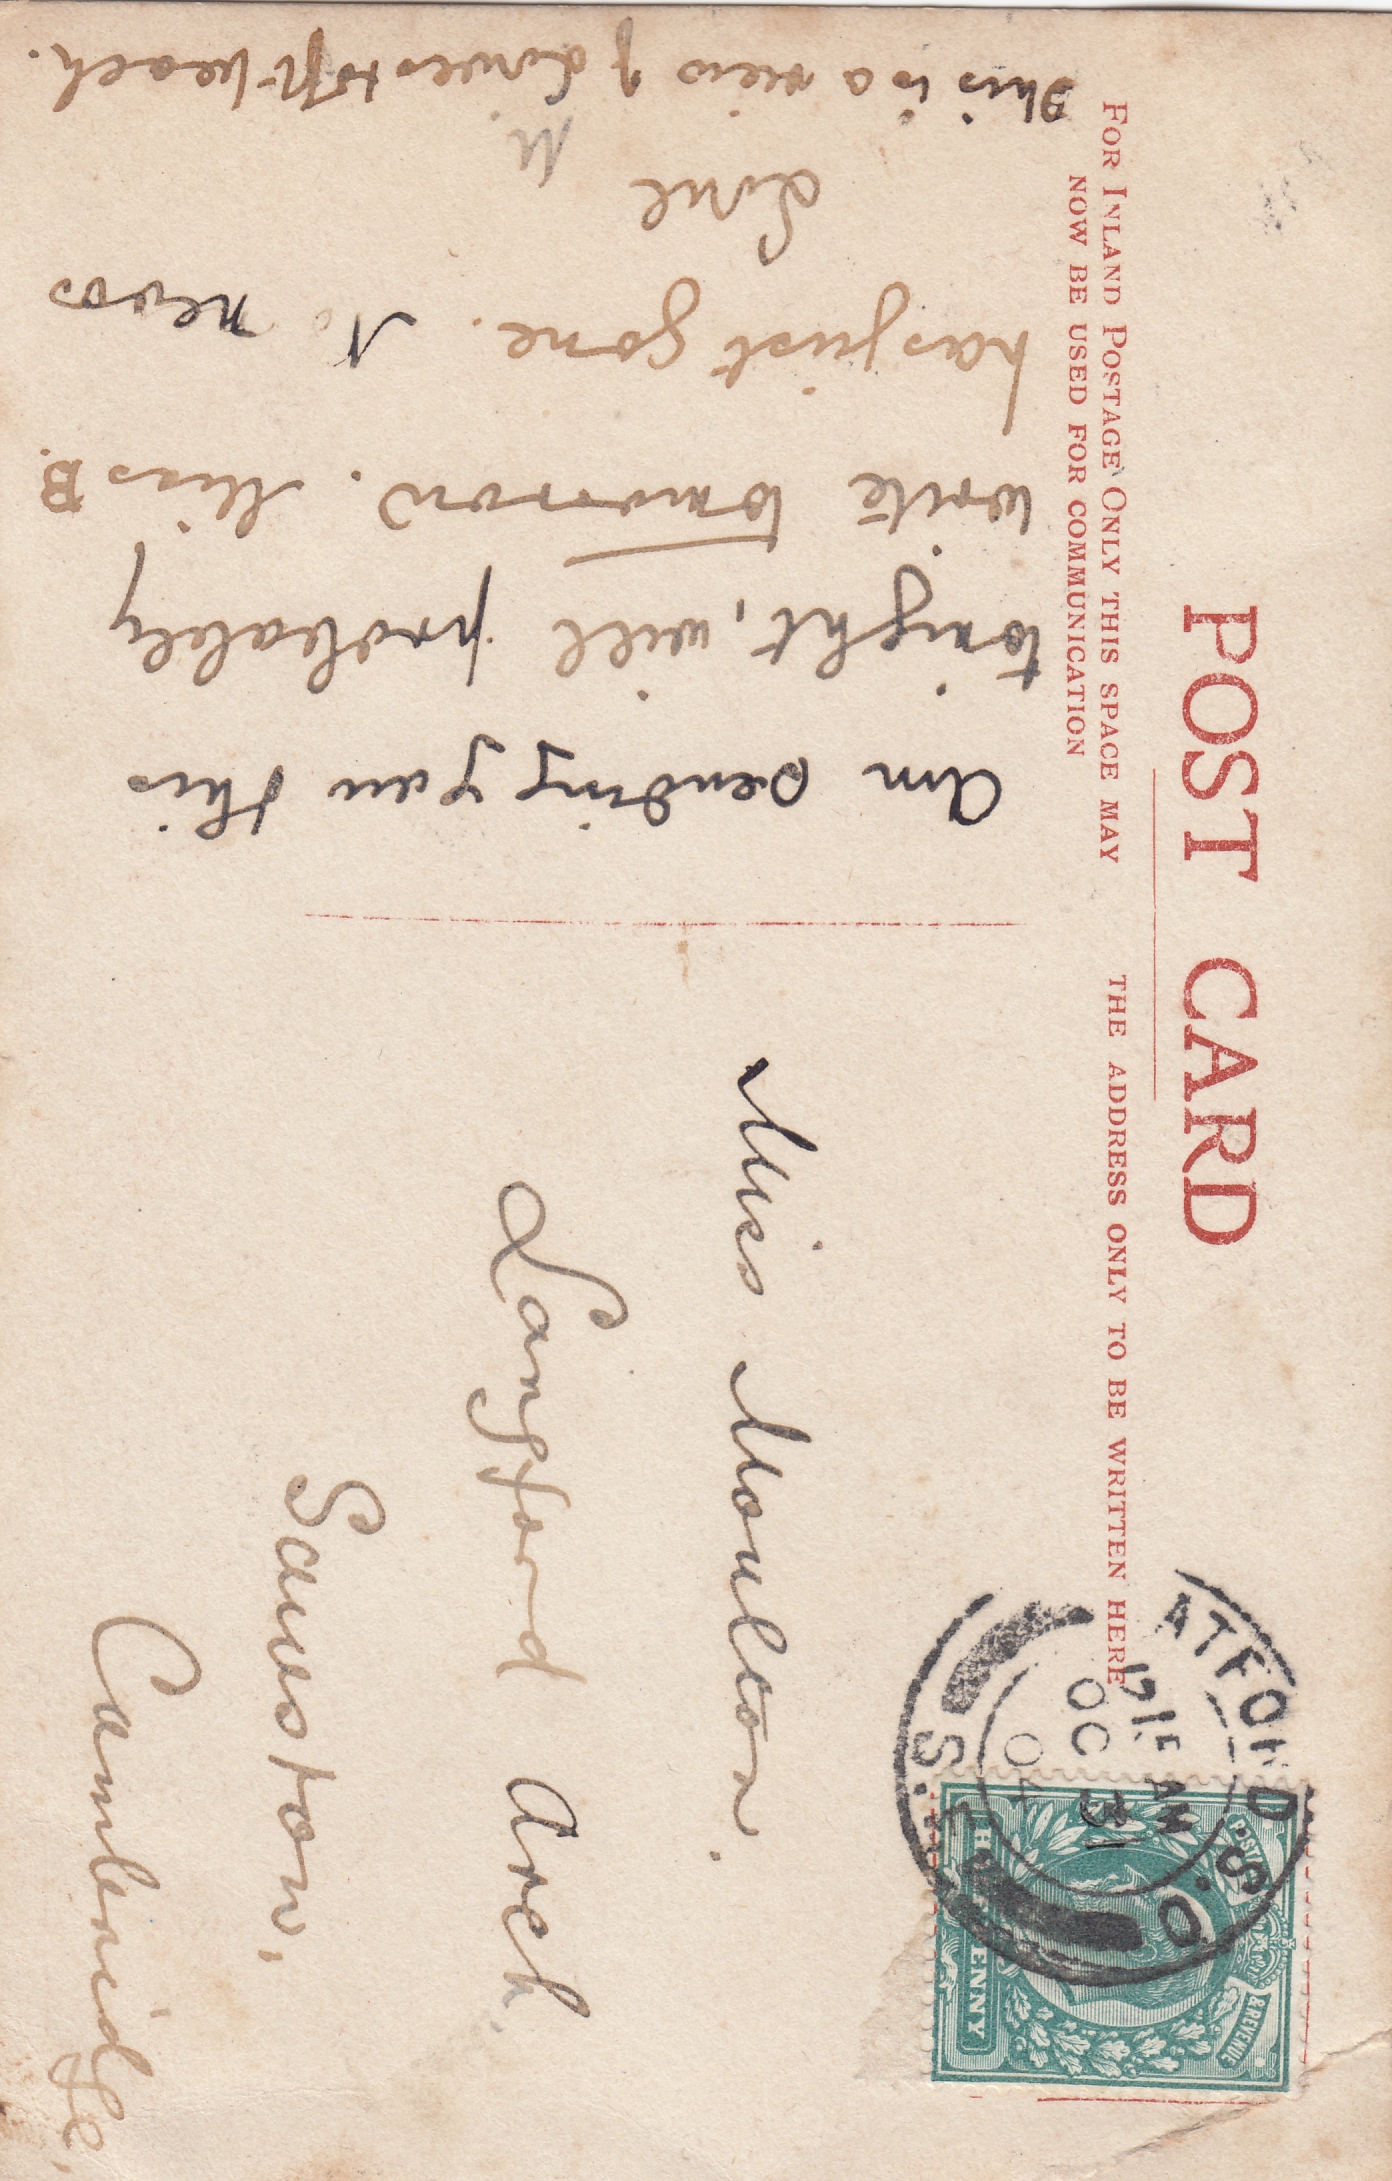 POST CARD
FOR INLAND POSTAGE ONLY THIS SPACE MAY
NOW BE USED FOR COMMUNICATION
THE ADDRESS ONLY TO BE WRITTEN HERE
This is a view of Lowestoft beach.
am sending you this
tonight, will probably
write tomorrow. Miss B.
has just gone. No news
Love
M.
Miss Moulton.
Langford Arch
Sawston,
Cambridge,
ATFORD . S . O.
AM
OC 31
04
S.
POSTAGE
& REVENUE
HALFPENNY